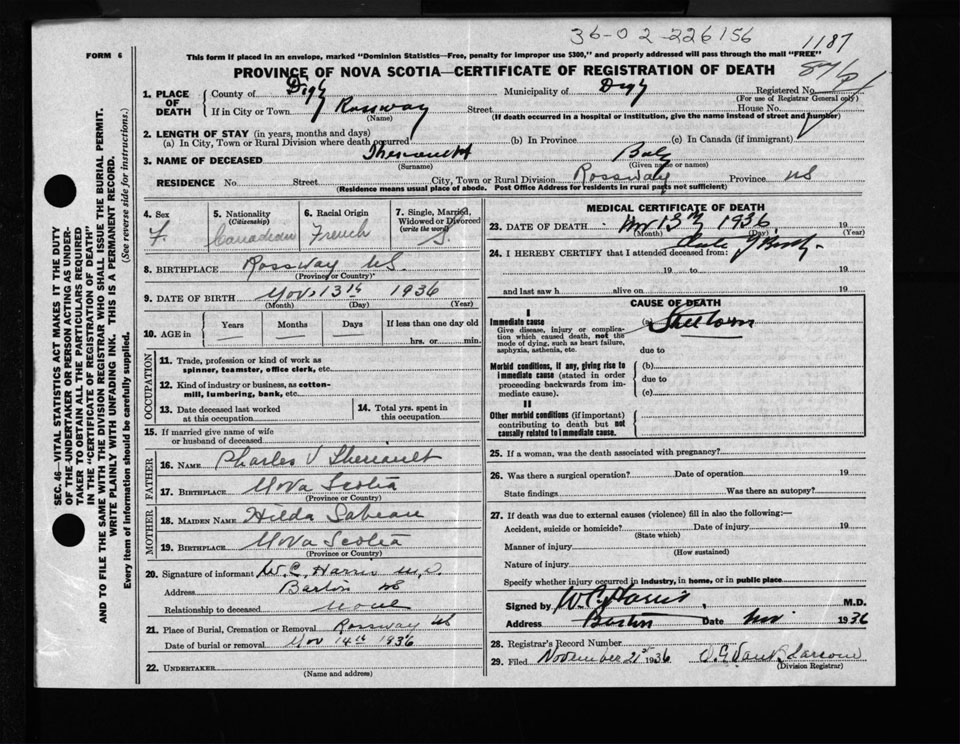 36-02-226156
1187
FORM 6
This form if placed in an envelope, marked "Dominion Statistics—Free, penalty for improper use $300," and properly addressed will pass through the mail "FREE"
PROVINCE OF NOVA SCOTIA—CERTIFICATE OF REGISTRATION OF DEATH
1. PLACE OF DEATH
County of Digby Municipality of Digby Registered No.
(For use of Registrar General only)
If in City or Town Rossway Street House No.
(Name) (If death occurred in a hospital or institution, give the name instead of street and number)
2. LENGTH OF STAY (in years, months and days)
(a) In City, Town or Rural Division where death occurred (b) In Province (c) In Canada (if immigrant)
3. NAME OF DECEASED Theriault Baby
(Surname) (Given name or names)
RESIDENCE No. Street City, Town or Rural Division Rossway Province NS
(Residence means usual place of abode. Post Office Address for residents in rural parts not sufficient)
4. Sex
F.
5. Nationality
(Citizenship)
Canadian
6. Racial Origin
French
7. Single, Married, Widowed or Divorced
(write the word)
S.
8. BIRTHPLACE Rossway NS.
(Province or Country)
9. DATE OF BIRTH Nov 13th 1936
(Month) (Day) (Year)
10. AGE in
Years Months Days If less than one day old
— — — hrs. or min.
OCCUPATION
11. Trade, profession or kind of work as
spinner, teamster, office clerk, etc.
12. Kind of industry or business, as cotton-
mill, lumbering, bank, etc.
13. Date deceased last worked
at this occupation
14. Total yrs. spent in
this occupation
15. If married give name of wife
or husband of deceased
FATHER
16. NAME Charles V Theriault
17. BIRTHPLACE Nova Scotia
(Province or Country)
MOTHER
18. MAIDEN NAME Hilda Sabean
19. BIRTHPLACE Nova Scotia
(Province or Country)
20. Signature of informant W. C. Harris M.D.
Address Barton NS
Relationship to deceased None
21. Place of Burial, Cremation or Removal Rossway NS
Date of burial or removal Nov 14th 1936
22. UNDERTAKER
(Name and address)
MEDICAL CERTIFICATE OF DEATH
23. DATE OF DEATH Nov 13th 1936 19
(Month) (Day) (Year)
24. I HEREBY CERTIFY that I attended deceased from: date of Birth
19 to 19
and last saw h alive on 19
CAUSE OF DEATH
I
Immediate cause
Give disease, injury or complica-
tion which caused death, not the
mode of dying, such as heart failure,
asphyxia, asthenia, etc.
(a) Stillborn
due to
Morbid conditions, if any, giving rise to
immediate cause (stated in order
proceeding backwards from im-
mediate cause).
(b)
due to
(c)
II
Other morbid conditions (if important)
contributing to death but not
causally related to immediate cause.
25. If a woman, was the death associated with pregnancy?
26. Was there a surgical operation? Date of operation 19
State findings Was there an autopsy?
27. If death was due to external causes (violence) fill in also the following:—
Accident, suicide or homicide? Date of injury 19
(State which)
Manner of injury
(How sustained)
Nature of injury
Specify whether injury occurred in industry, in home, or in public place
Signed by W. C. Harris, M.D.
Address Barton Date Nov 1936
28. Registrar's Record Number
29. Filed November 21st 1936
(Division Registrar)
SEC. 46—VITAL STATISTICS ACT MAKES IT THE DUTY
OF THE UNDERTAKER OR PERSON ACTING AS UNDER-
TAKER TO OBTAIN ALL THE PARTICULARS REQUIRED
IN THE "CERTIFICATE OF REGISTRATION OF DEATH"
AND TO FILE THE SAME WITH THE DIVISION REGISTRAR WHO SHALL ISSUE THE BURIAL PERMIT.
WRITE PLAINLY WITH UNFADING INK. THIS IS A PERMANENT RECORD.
Every item of information should be carefully supplied. (See reverse side for instructions.)